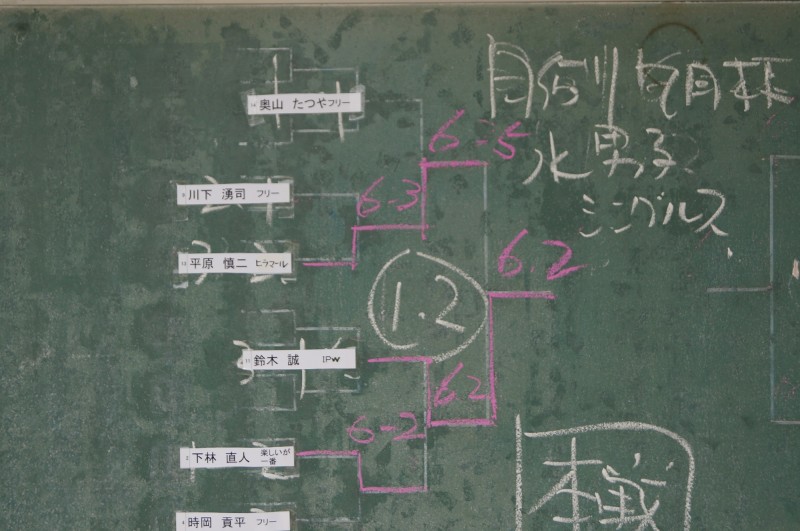 奥山 たつや フリー
川下 湧司 フリー
平原 慎二 ヒラマール
鈴木 誠 IPW
下林 直人 楽しいが
一番
時岡 貢平 フリー
6-5
6-3
6.2
1.2
62
6-2
月例 毎月杯
水 男子
シングルス
本戦